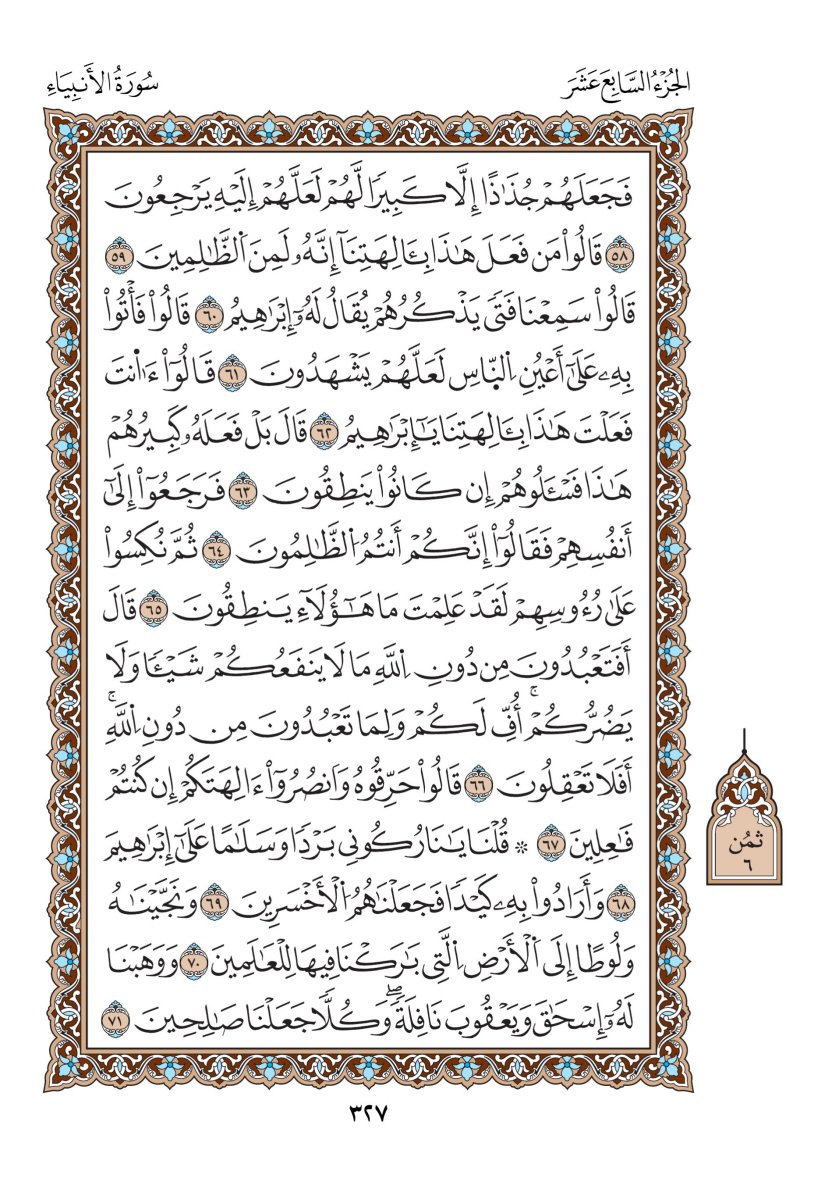 الجُزْءُ السَّابِعَ عَشَرَ
سُورَةُ الأَنبِيَاءِ
فَجَعَلَهُمْ جُذَٰذًا إِلَّا كَبِيرٗا لَّهُمْ لَعَلَّهُمْ إِلَيْهِ يَرْجِعُونَ
٥٨ قَالُواْ مَن فَعَلَ هَٰذَا بِـَٔالِهَتِنَآ إِنَّهُۥ لَمِنَ اَ۬لظَّٰلِمِينَ ٥٩
قَالُواْ سَمِعْنَا فَتٗى يَذْكُرُهُمْ يُقَالُ لَهُۥٓ إِبْرَٰهِيمُ ٦٠ قَالُواْ فَأْتُواْ
بِهِۦ عَلَىٰٓ أَعْيُنِ اِ۬لنَّاسِ لَعَلَّهُمْ يَشْهَدُونَ ٦١ قَالُوٓاْ ءَاٰنتَ
فَعَلْتَ هَٰذَا بِـَٔالِهَتِنَا يَٰٓإِبْرَٰهِيمُ ٦٢ قَالَ بَلْ فَعَلَهُۥ كَبِيرُهُمْ
هَٰذَا فَسْـَٔلُوهُمْ إِن كَانُواْ يَنطِقُونَ ٦٣ فَرَجَعُوٓاْ إِلَىٰٓ
أَنفُسِهِمْ فَقَالُوٓاْ إِنَّكُمْ أَنتُمُ اُ۬لظَّٰلِمُونَ ٦٤ ثُمَّ نُكِسُواْ
عَلَىٰ رُءُوسِهِمْ لَقَدْ عَلِمْتَ مَا هَٰٓؤُلَآءِ يَنطِقُونَ ٦٥ قَالَ
أَفَتَعْبُدُونَ مِن دُونِ اِ۬للَّهِ مَا لَا يَنفَعُكُمْ شَيْـٔٗا وَلَا
يَضُرُّكُمْۚ أُفِّ لَكُمْ وَلِمَا تَعْبُدُونَ مِن دُونِ اِ۬للَّهِۚ
أَفَلَا تَعْقِلُونَ ٦٦ قَالُواْ حَرِّقُوهُ وَانصُرُوٓاْ ءَالِهَتَكُمْ إِن كُنتُمْ
فَٰعِلِينَ ٦٧ ۞ قُلْنَا يَٰنَارُ كُونِى بَرْدٗا وَسَلَٰمًا عَلَىٰٓ إِبْرَٰهِيمَ
٦٨ وَأَرَادُواْ بِهِۦ كَيْدٗا فَجَعَلْنَٰهُمُ اُ۬لْأَخْسَرِينَ ٦٩ وَنَجَّيْنَٰهُ
وَلُوطًا إِلَى اَ۬لْأَرْضِ اِ۬لَّتِى بَٰرَكْنَا فِيهَا لِلْعَٰلَمِينَ ٧٠ وَوَهَبْنَا
لَهُۥٓ إِسْحَٰقَ وَيَعْقُوبَ نَافِلَةٗۖ وَكُلّٗا جَعَلْنَا صَٰلِحِينَ ٧١
ثُمُن
٦
٣٢٧